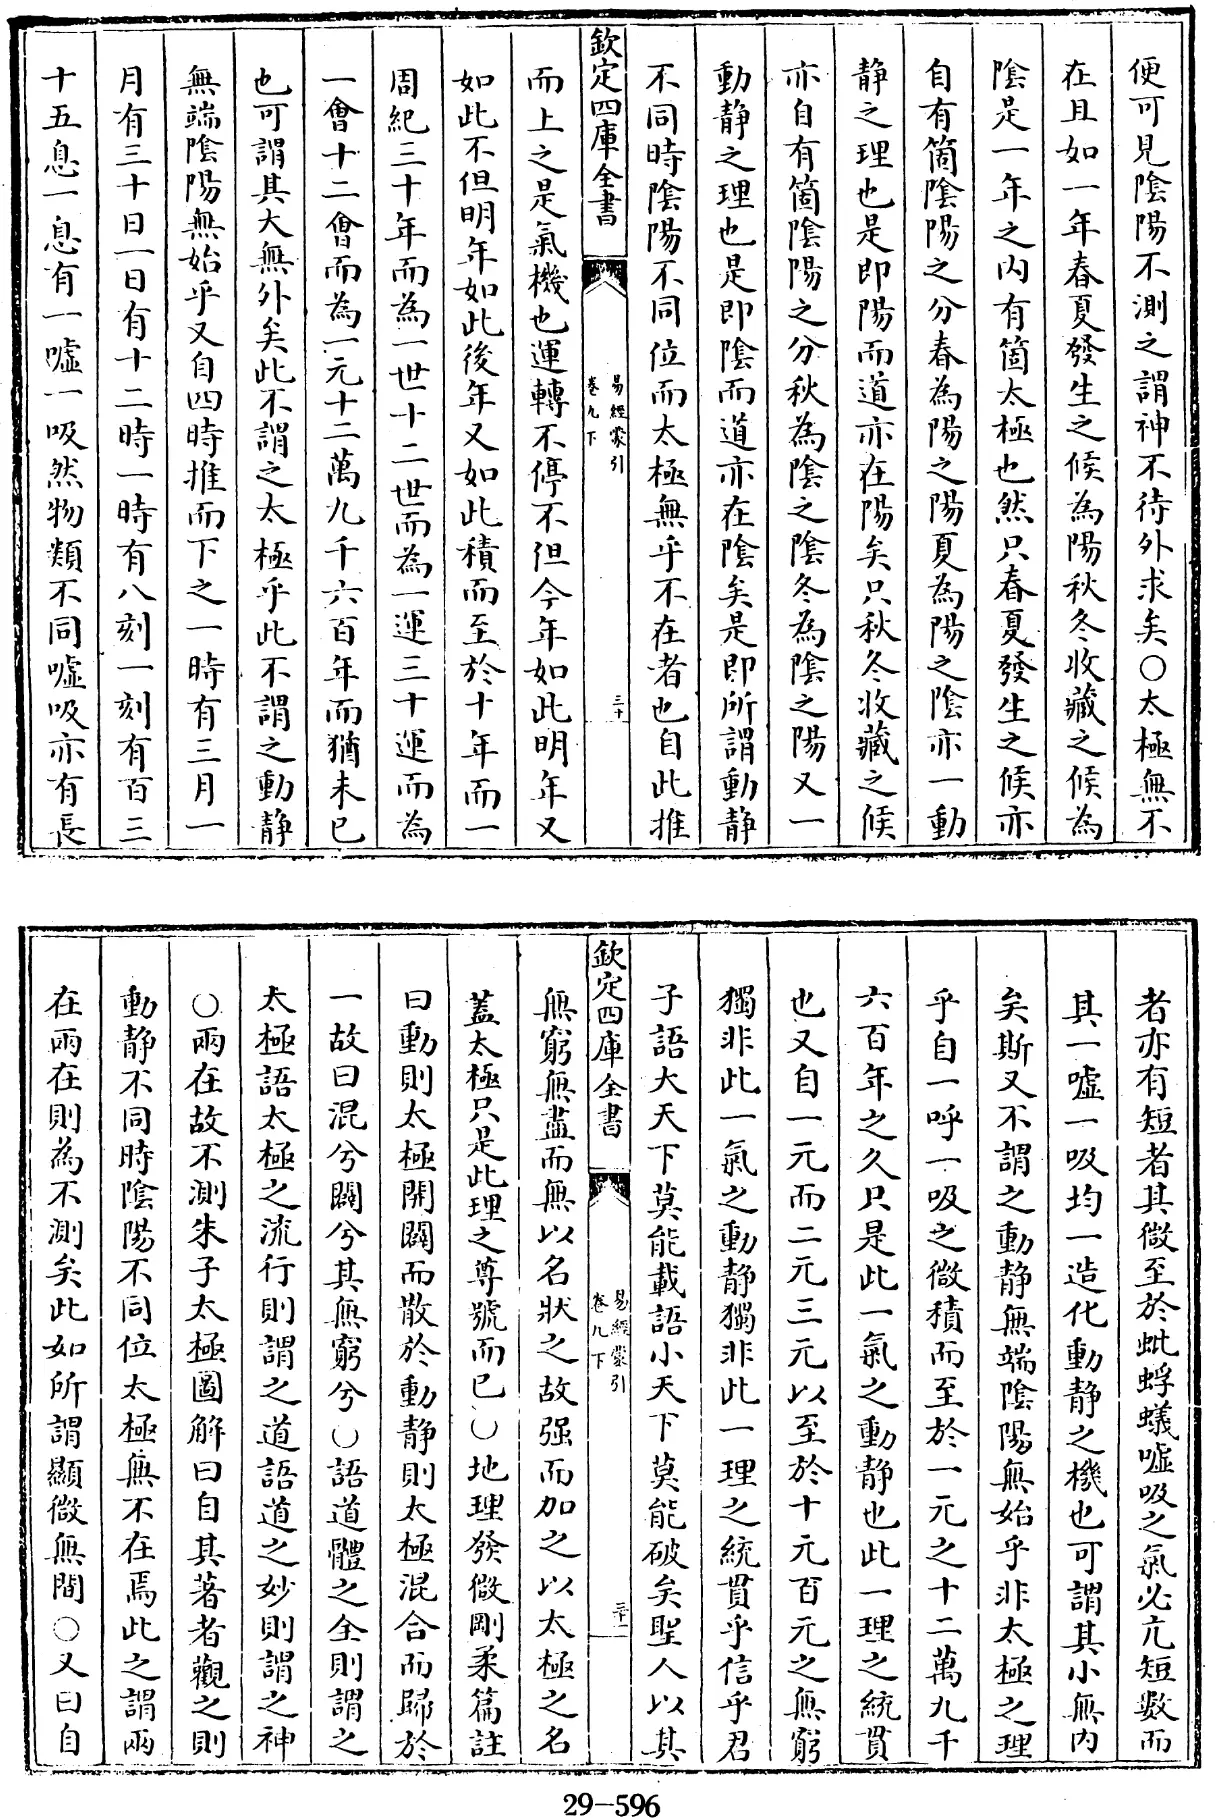 便可見陰陽不測之謂神不待外求矣○太極無不
在且如一年春夏發生之候為陽秋冬收藏之候為
陰是一年之内有箇太極也然只春夏發生之候亦
自有箇陰陽之分春為陽之陽夏為陽之陰亦一動
靜之理也是即陽而道亦在陽矣只秋冬收藏之候
亦自有箇陰陽之分秋為陰之陰冬為陰之陽又一
動靜之理也是即陰而道亦在陰矣是即所謂動靜
不同時陰陽不同位而太極無乎不在者也自此推
欽定四庫全書
易經蒙引
卷九下
三十
而上之是氣機也運轉不停不但今年如此明年又
如此不但明年如此後年又如此積而至於十年而一
周紀三十年而為一世十二世而為一運三十運而為
一會十二會而為一元十二萬九千六百年而猶未已
也可謂其大無外矣此不謂之太極乎此不謂之動靜
無端陰陽無始乎又自四時推而下之一時有三月一
月有三十日一日有十二時一時有八刻一刻有百三
十五息一息有一噓一吸然物類不同噓吸亦有長
者亦有短者其微至於蚍蜉蟻噓吸之氣必亢短數而
其一噓一吸均一造化動靜之機也可謂其小無内
矣斯又不謂之動靜無端陰陽無始乎非太極之理
乎自一呼一吸之微積而至於一元之十二萬九千
六百年之久只是此一氣之動靜也此一理之統貫
也又自一元而二元三元以至於十元百元之無窮
獨非此一氣之動靜獨非此一理之統貫乎信乎君
子語大天下莫能載語小天下莫能破矣聖人以其
欽定四庫全書
易經蒙引
卷九下
三十一
無窮無盡而無以名狀之故强而加之以太極之名
蓋太極只是此理之尊號而已○地理發微剛柔篇註
曰動則太極開闢而散於動靜則太極混合而歸於
一故曰混兮闢兮其無窮兮○語道體之全則謂之
太極語太極之流行則謂之道語道之妙則謂之神
○兩在故不測朱子太極圖解曰自其著者觀之則
動靜不同時陰陽不同位太極無不在焉此之謂兩
在兩在則為不測矣此如所謂顯微無間○又曰自
29-596